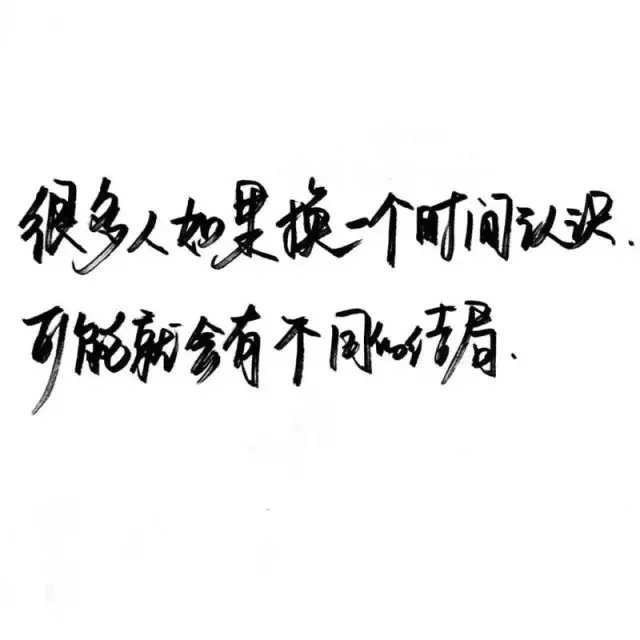 很多人如果换一个时间认识.
可能就会有不同的结局.